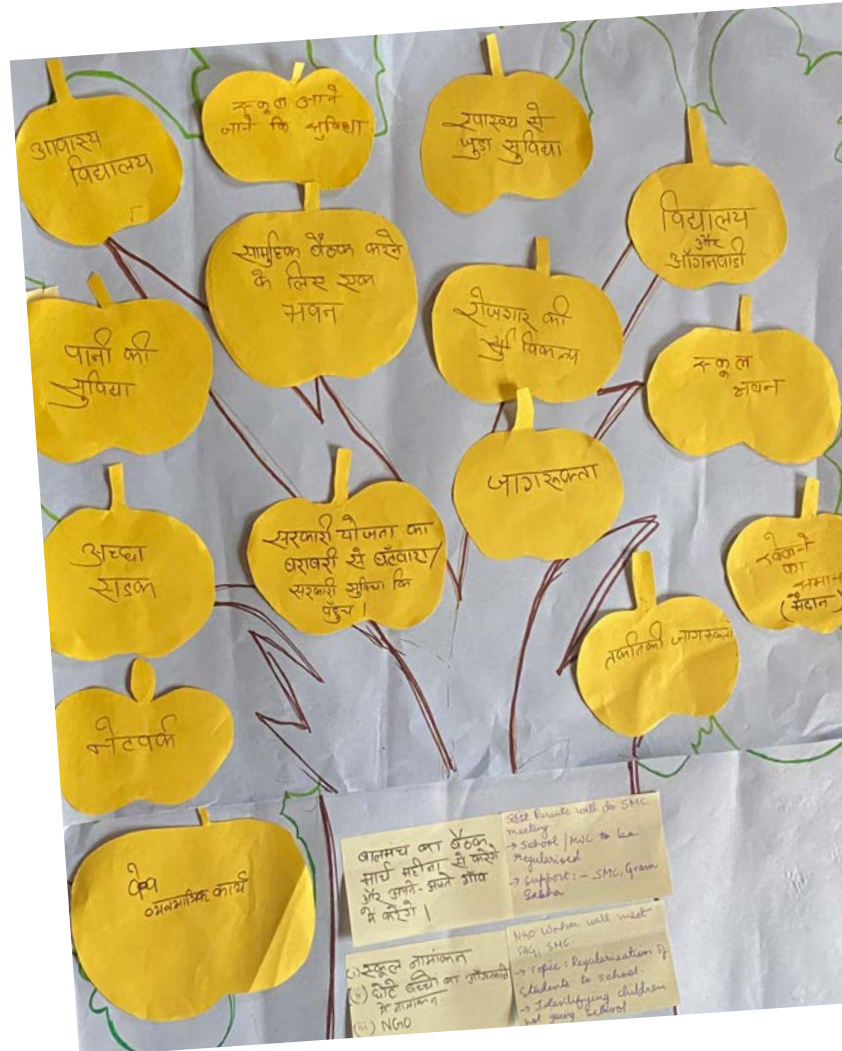 आवास्य
विद्यालय
स्कूल आने
जाने कि सुविधा
स्वास्थ्य से
जुड़ा सुविधा
विद्यालय
और
आँगनवाडी
सामुहिक बैठक करने
के लिए एक
भवन
रोजगार की
विकल्प
पानी की
सुविधा
स्कूल
भवन
जागरूकता
अच्छा
सडक
सरकारी योजना का
बराबरी से बँटवारा/
सरकारी सुविधा कि
पहुँच।
खेलने
का
समान
(मैदान)
तकनिकी जागरूकता
नेटवर्क
कार्य
बालमंच का बैठक
मार्च महीना से करेंगे
और अपने-अपने गाँव
में करेंगे।
Parents will do SMC
meeting
→ School/AWC to be
regularised
→ Support:- SMC, Gram
Sabha
(i) स्कूल नामांकन
(ii) छोटे बच्चों का आँगनबाड़ी
में नामांकन.
(iii) NGO
NGO Worker will meet
SMC
→ Topic: Regularisation of
Students to school.
→ Identifying children
not going school